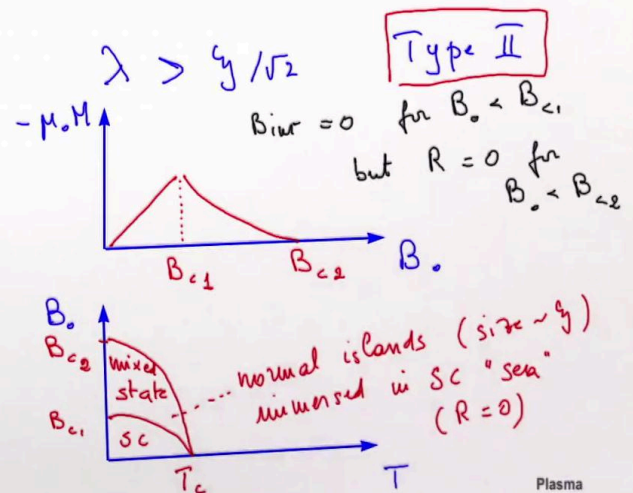 Type II
λ > ξ/√2
B_int = 0 for B₀ < B_c1
but R = 0 for
B₀ < B_c2
-μ₀M
B_c1
B_c2
B₀
B₀
B_c2
mixed
state
B_c1
SC
T_c
T
normal islands (size ~ ξ)
immersed in SC "sea"
(R = 0)
Plasma